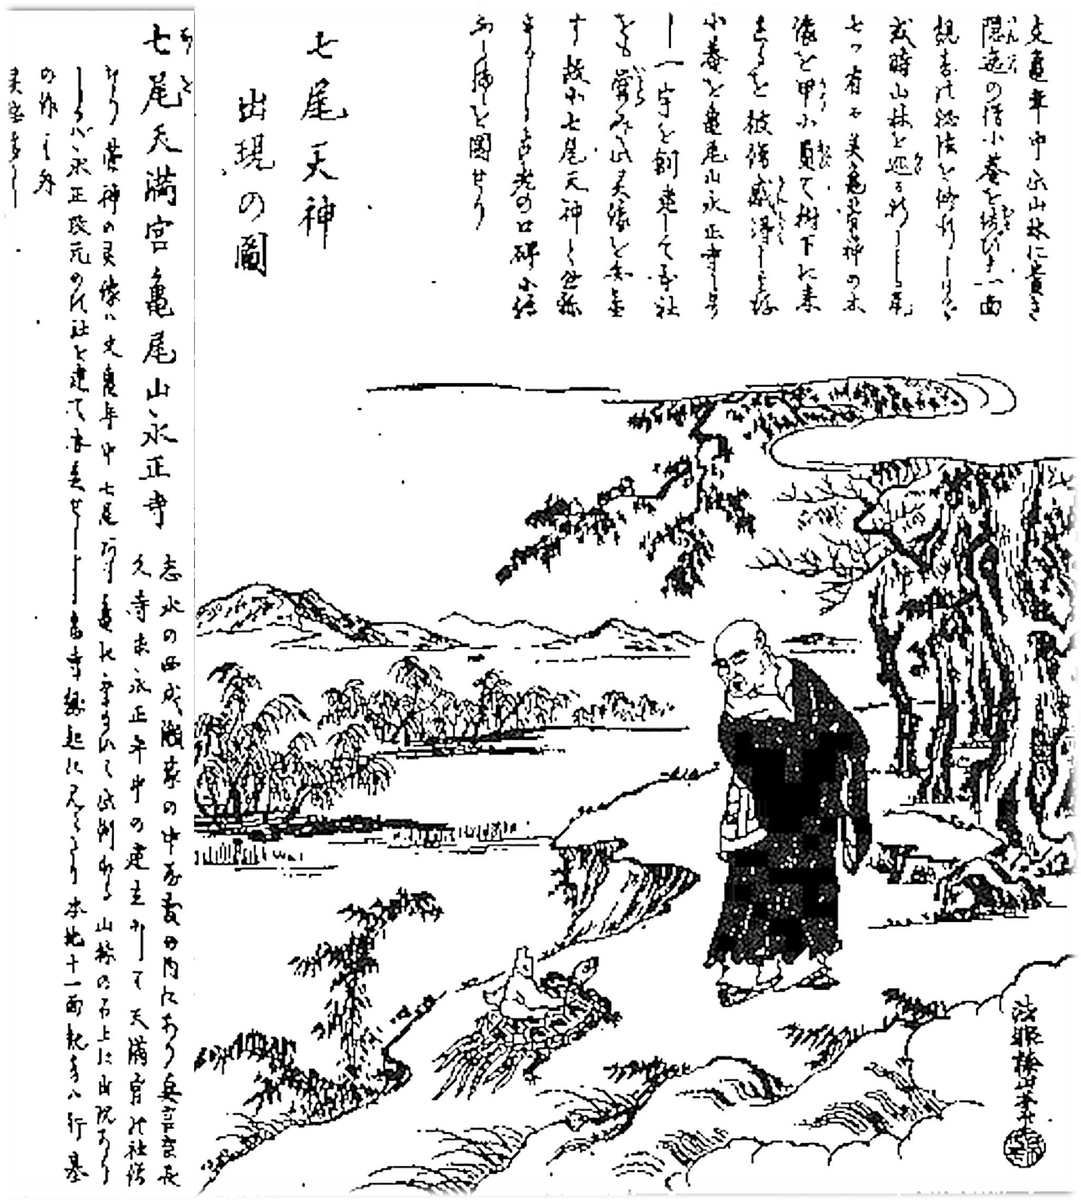 文亀年中此山林に貴き
隠遁の僧小菴を結び十一面
観音の秘法を修行しける
或時山林を巡る折しも尾
七つ有る美亀菅神の木
像を甲に負て樹下に来
れるを彼僧感得し其後
小菴を亀尾山永正寺と号
し一宇を創建して当社
をも営み此灵像を安置
す故に七尾天神と世に称
するよし古老の口碑に伝
ふる
を圖せり
七尾天神
出現の圖
七尾天満宮亀尾山永正寺
志水の西成瀬家の中屋敷の内にあり真言宗長
久寺末永正年中の建立にして天満宮の社僧
なり當神の灵像は文亀年中七尾ある亀に乗て此所なる山林の石上に出現あり
しかば永正改元の比社を建て安置せしよし當寺縁起に見えたり本地十一面観音は行基
の作